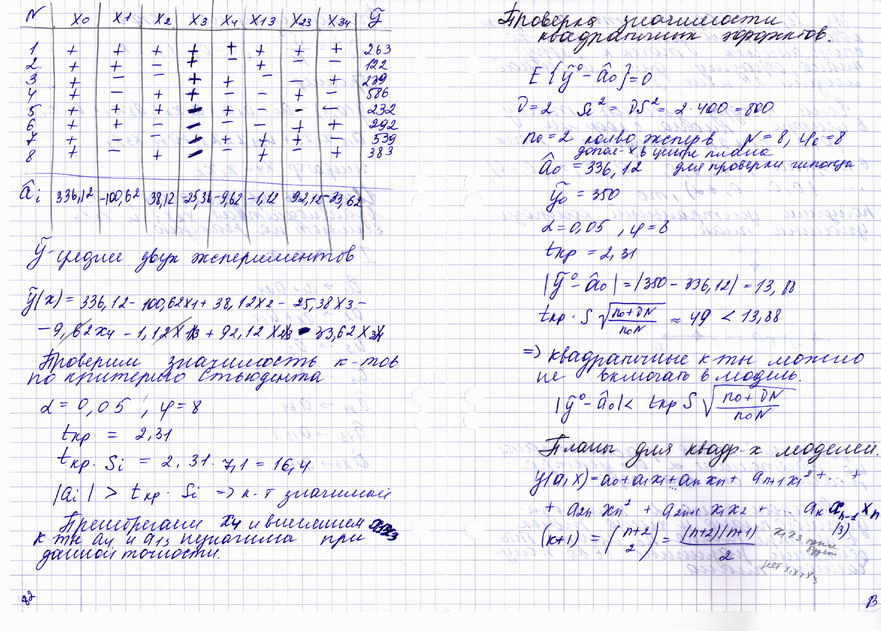 N X0 X1 X2 X3 X4 X13 X23 X34 ȳ
1 + + + + + + + + 263
2 + + − + − + − − 122
3 + − − + + − − + 239
4 + − + + − − + − 586
5 + + + − + − − − 232
6 + + − − − − + + 292
7 + − − − + + + − 539
8 + − + − − + − + 383
âi 336,12 -100,62 38,12 -25,38 -9,62 -1,12 92,12 -33,62
ȳ - среднее двух экспериментов
ŷ(x) = 336,12 - 100,62x1 + 38,12x2 - 25,38x3 -
- 9,62x4 - 1,12x13 + 92,12x23 - 33,62x34
Проверим значимость к-тов
по критерию Стьюдента
α = 0,05 , φ = 8
tкр = 2,31
tкр · Si = 2,31 · 7,1 = 16,4
|ai| > tкр · Si => к-т значимый
Пренебрегаем x4 и x1x3
к-ты a4 и a13 при
данной точности.
82
Проверка значимости
квадратичных эффектов.
E{ȳ⁰ - â0} = 0
D = 2 Si² = DS² = 2·400 = 800
n0 = 2 кол-во экспер-в N = 8, φ0 = 8
допол-х в центре плана
â0 = 336,12 для проверки гипотезы
ȳ0 = 350
α = 0,05 , φ = 8
tкр = 2,31
|ȳ⁰ - â0| = |350 - 336,12| = 13,88
tкр · S √(n0+DN / n0N) ≈ 49 < 13,88
=> квадратичные к-ты можно
не включать в модель.
|ȳ⁰ - â0| < tкр S √(n0+DN / n0N)
Планы для квадр-х моделей.
y(a,x) = a0 + a1x1 + anxn + an+1x1² + ... +
+ a2n xn² + a2n+1 x1x2 + ... ak xn-1 xn
(k+1) = (n+2 2) = (n+2)(n+1) / 2
(3)
нет x1x2x3
В